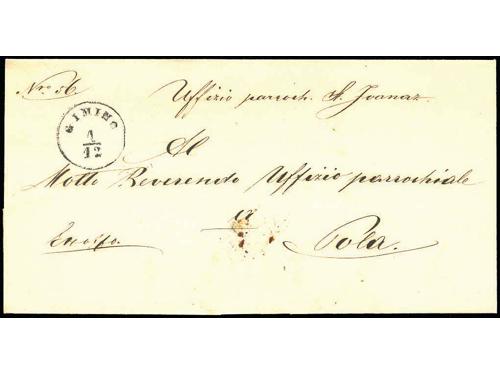 Nro 56
Uffizio parroch. S. Ivanaz
GIMINO
1/12
Al
Molto Reverendo Uffizio parrochiale
a
Pola.